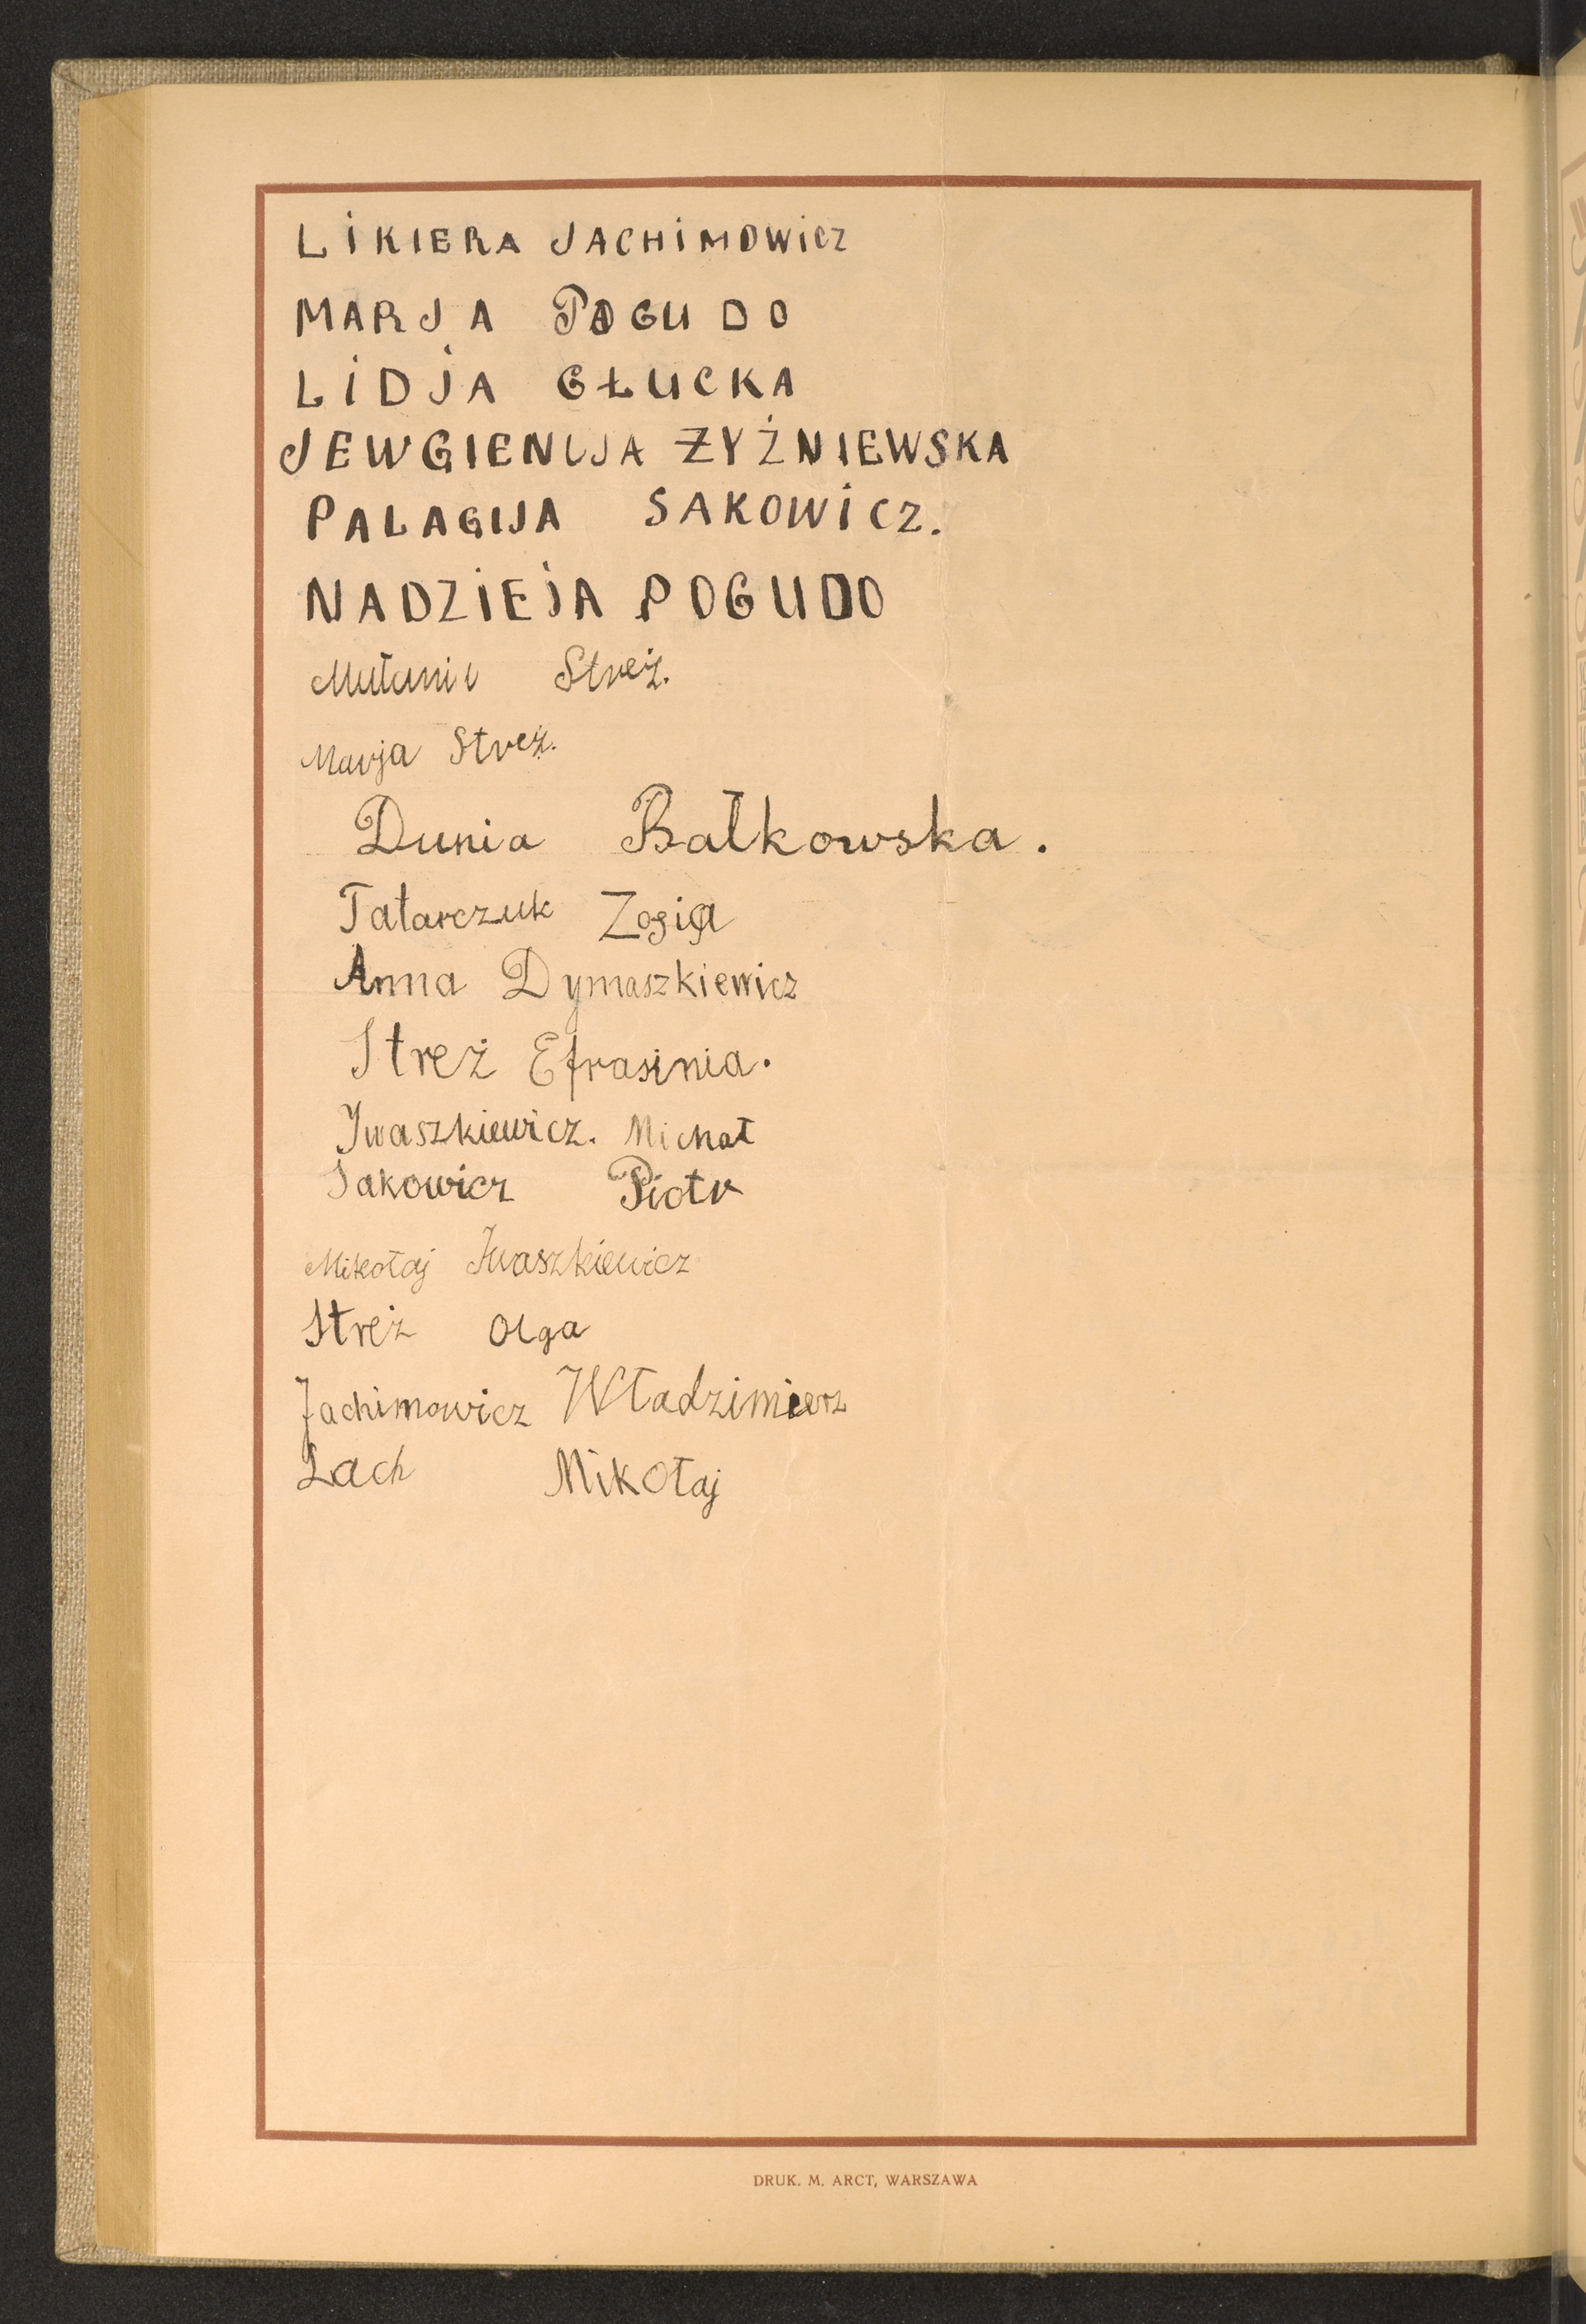 LiKIERA JACHiMOWicz
MARJA POGUDO
LiDJA GŁUCKA
JEWGIENIJA ŻYŹNIEWSKA
PALAGIJA SAKOWiCZ.
NADZiEJA POGUDO
Streż.
Marja Streż.
Dunia Bałkowska.
Tatarczuk Zosia
Anna Dymaszkiewicz
Streż Efrasinia.
Iwaszkiewicz. Michał
Sakowicz Piotr
Mikołaj Iwaszkiewicz
Streż Olga
Jachimowicz Władzimierz
Lach Mikołaj
DRUK. M. ARCT, WARSZAWA